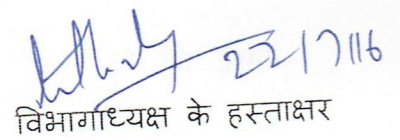 22/7/16
विभागाध्यक्ष के हस्ताक्षर